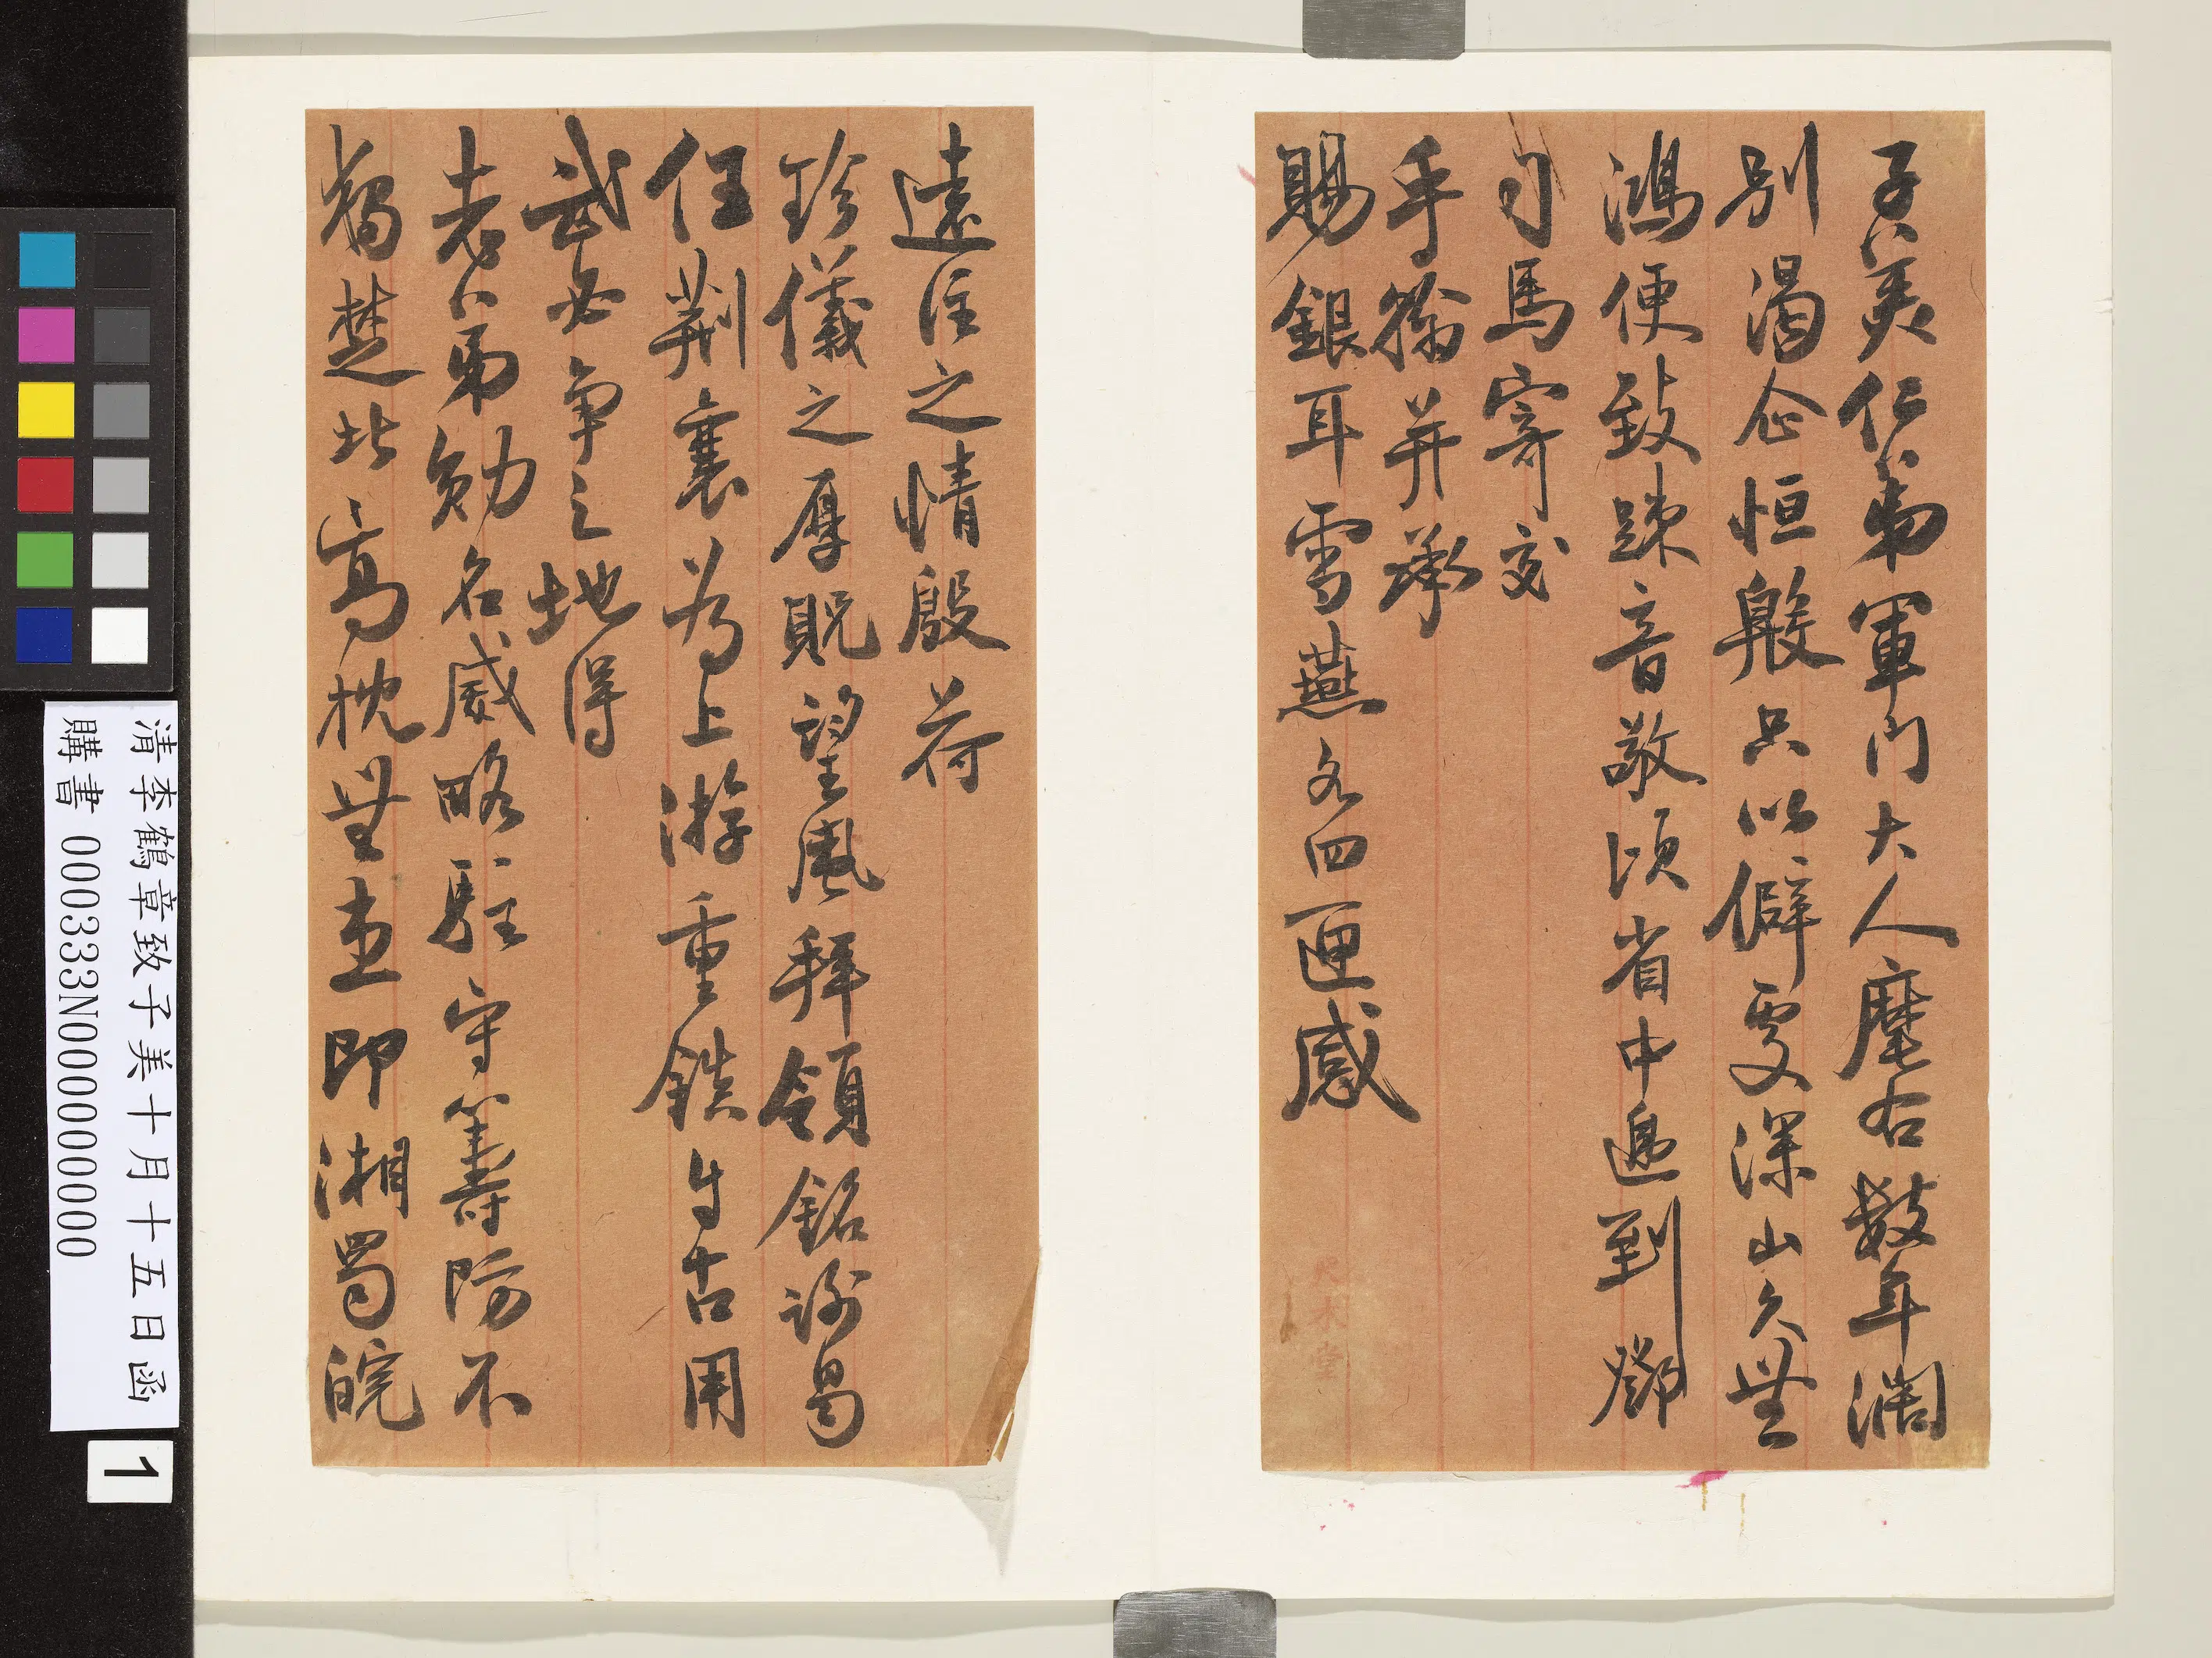 子美仁弟軍門大人麾右數年闊
別渴企恒殷只以僻處深山久無
鴻便致疎音敬頃省中遞到鄧
司馬寄交
手翰并承
賜銀耳雪燕各四匣感
遠注之情殷荷
珍儀之厚貺望風拜領銘謝曷
任荊襄為上游重鎮自古用
武必爭之地得
老弟勛名威略駐守籌防不
獨楚北高枕無虞即湘蜀皖
清李鶴章致子美十月十五日函
購書 000333N000000000
1